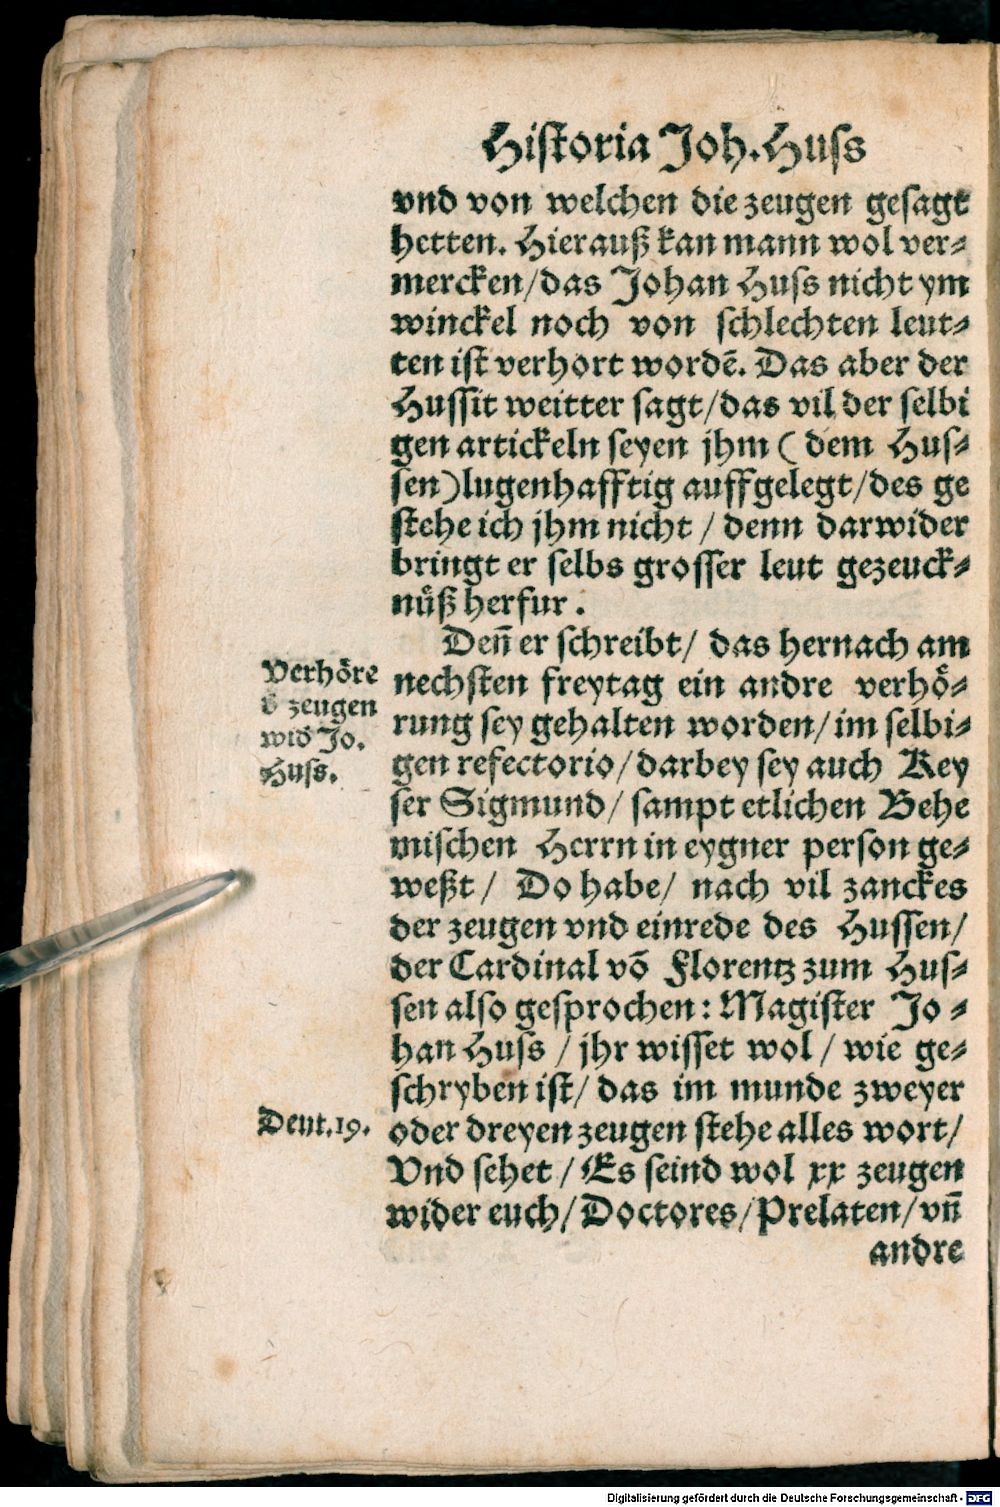 Historia Joh. Huss
vnd von welchen die zeugen gesagt
hetten. Hierauß kan mann wol ver⸗
mercken/das Johan Huss nicht ym
winckel noch von schlechten leut⸗
ten ist verhort wordē. Das aber der
Hussit weitter sagt/das vil der selbi
gen artickeln seyen jhm ( dem Hus⸗
sen)lugenhafftig auffgelegt/des ge
stehe ich jhm nicht / denn darwider
bringt er selbs grosser leut gezeuck⸗
nüß herfur .
Deñ er schreibt/ das hernach am
nechsten freytag ein andre verhö⸗
rung sey gehalten worden/im selbi⸗
gen refectorio/darbey sey auch Key
ser Sigmund/ sampt etlichen Behe
mischen Herrn in eygner person ge⸗
weßt / Do habe/ nach vil zanckes
der zeugen vnd einrede des Hussen/
der Cardinal vō Florentz zum Hus⸗
sen also gesprochen : Magister Jo ⸗
han Huss / jhr wisset wol / wie ge⸗
schryben ist/ das im munde zweyer
oder dreyen zeugen stehe alles wort/
Vnd sehet / Es seind wol xx zeugen
wider euch/Doctores/Prelaten/vñ
andre
Verhöre
d zeugen
wid Jo.
Huss.
Deut.19.
Digitalisierung gefördert durch die Deutsche Forschungsgemeinschaft - DFG